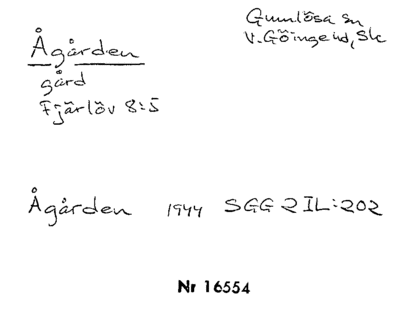 Ågården
gård
Fjärlöv 8:5
Gumlösa sn
V. Göinge hd, Skå
Ågården 1944 SGG 2 IL:202
Nr 16554